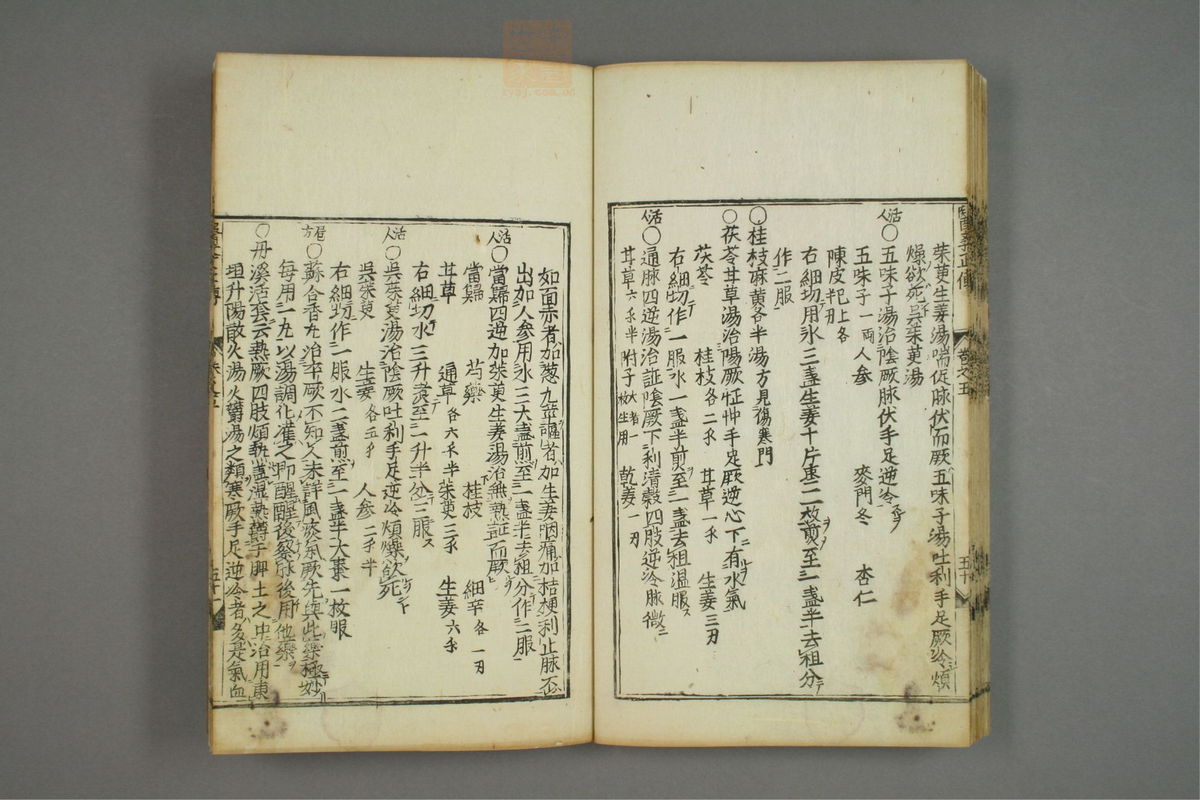 茱萸生姜湯喘促脉伏而厥五味子湯吐利手足厥冷煩
燥欲死吳茱萸湯
活人○五味子湯治陰厥脉伏手足逆冷
五味子一両 人参 麥門冬 杏仁
陳皮 已上各
右細切用水三盞生姜十片枣二枚煎至一盞半去粗分
作二服
○桂枝麻黄各半湯方見傷寒門
○茯苓甘草湯治陽厥怔忡手足厥逆心下有水氣
茯苓 桂枝各二 甘草一 生姜三刃
右細切作一服水一盞半煎至一盞去粗温服
活人○通脉四逆湯治証陰厥下利清穀四肢逆冷脉微
甘草六 半 附子大者一枚生用 乾姜一刃
如面赤者加葱九莖 者加生姜咽痛加桔梗利止脉不
出加人参用水三大盞煎至一盞半去粗分作二服
活人○當歸四逆加茱萸生姜湯治無熱証而厥
當歸 芍藥 桂枝 細辛各一刃
甘草 通草各六 半 茱萸三 生姜六
右細切水三升煮至一升半分三服
活人○吳茱萸湯治陰厥吐利手足逆冷煩燥欲死
吳茱萸 生姜各五 人参二 半
右細切作一服水二盞煎至一盞半大枣一枚服
局方○蘇合香丸治卒厥不知人未詳風痰氣厥先與此藥極妙
每用一丸以湯調化灌之即醒醒後察脉後用他藥
○丹溪活套云熱厥四肢煩熱盖湿熱欝于脾土之中治用東
垣升陽散火湯火欝湯之類寒厥手足逆冷者多是氣血
醫学正傳 卷之五 五十